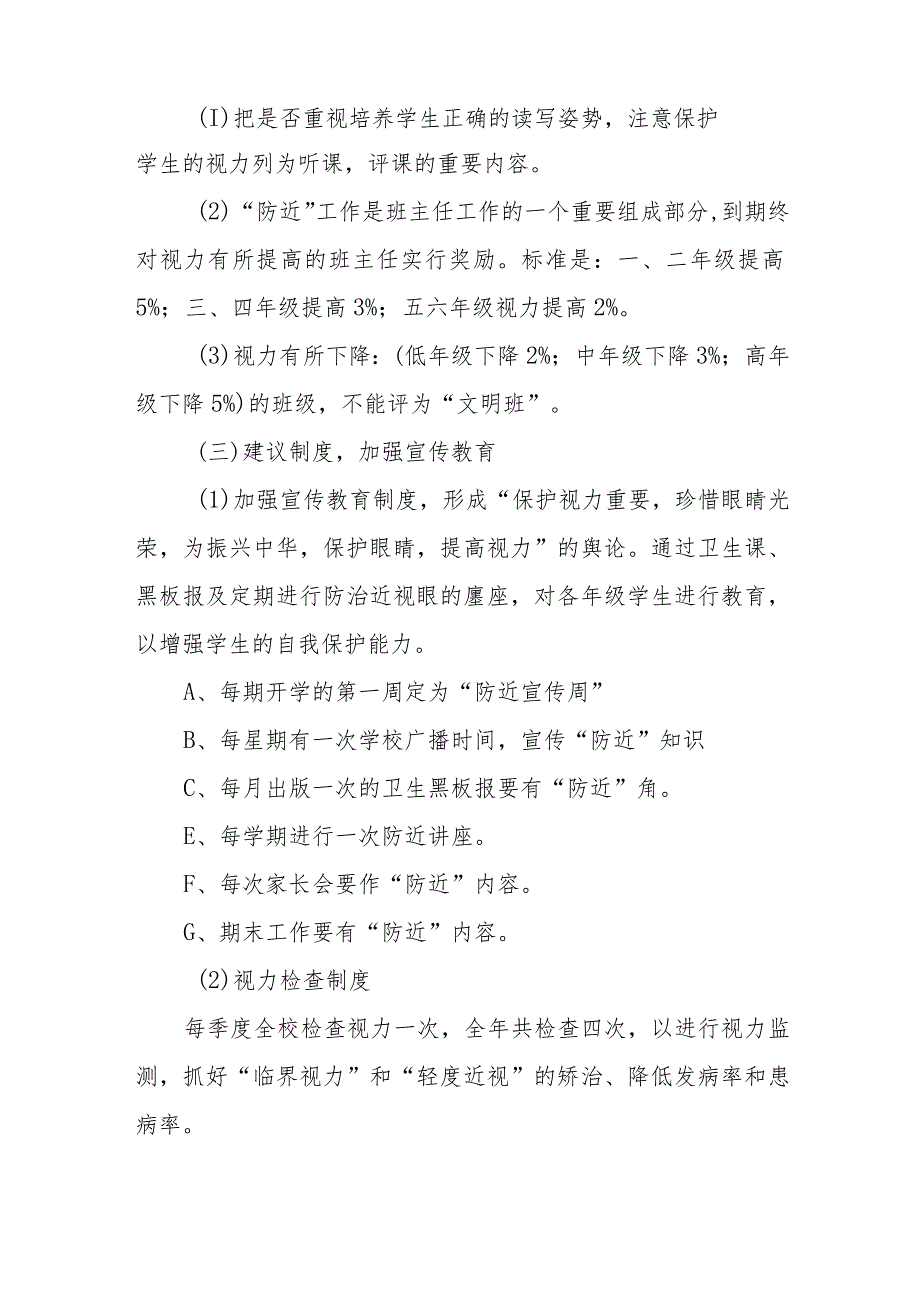 (I)把是否重视培养学生正确的读写姿势，注意保护
学生的视力列为听课，评课的重要内容。
(2)“防近”工作是班主任工作的一个重要组成部分,到期终
对视力有所提高的班主任实行奖励。标准是：一、二年级提高
5%；三、四年级提高3%；五六年级视力提高2%。
(3)视力有所下降：(低年级下降2%；中年级下降3%；高年
级下降5%)的班级，不能评为“文明班”。
(三)建议制度，加强宣传教育
(1)加强宣传教育制度，形成“保护视力重要，珍惜眼睛光
荣，为振兴中华，保护眼睛，提高视力”的舆论。通过卫生课、
黑板报及定期进行防治近视眼的廛座，对各年级学生进行教育，
以增强学生的自我保护能力。
A、每期开学的第一周定为“防近宣传周”
B、每星期有一次学校广播时间，宣传“防近”知识
C、每月出版一次的卫生黑板报要有“防近”角。
E、每学期进行一次防近讲座。
F、每次家长会要作“防近”内容。
G、期末工作要有“防近”内容。
(2)视力检查制度
每季度全校检查视力一次，全年共检查四次，以进行视力监
测，抓好“临界视力”和“轻度近视”的矫治、降低发病率和患
病率。